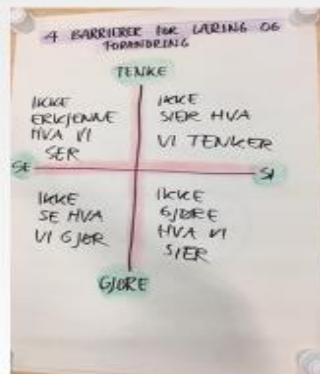 4 BARRIERER FOR LÆRING OG
FORANDRING
TENKE
IKKE
ERKJENNE
HVA VI
SER
IKKE
SIER HVA
VI TENKER
SE
SI
IKKE
SE HVA
VI GJØR
IKKE
GJØRE
HVA VI
SIER
GJØRE